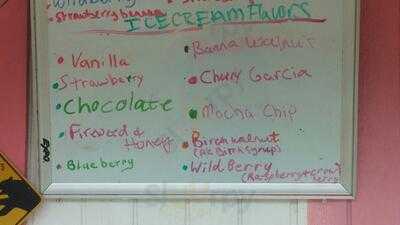 Strawberry banana
ICECREAM Flavors
Vanilla
Strawberry
Chocolate
Fireweed &
Honey
Blueberry
Banna Walnut
Chury Garcia
Mocha Chip
Birch walnut
(AK Birch Syrup)
Wild Berry
(Raspberry + crow
berry